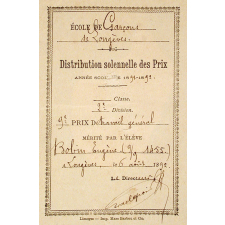 ÉCOLE DE Garçons
de Longèves
Distribution solennelle des Prix
ANNÉE SCOLAIRE 1891-1892
Classe.
2e Division.
9e PRIX De travail général
MÉRITÉ PAR L'ÉLÈVE
Bobin Eugène
à Longèves, 16 août 1892
Le Directeur
Limoges — Imp. Marc Barbou et Cie.